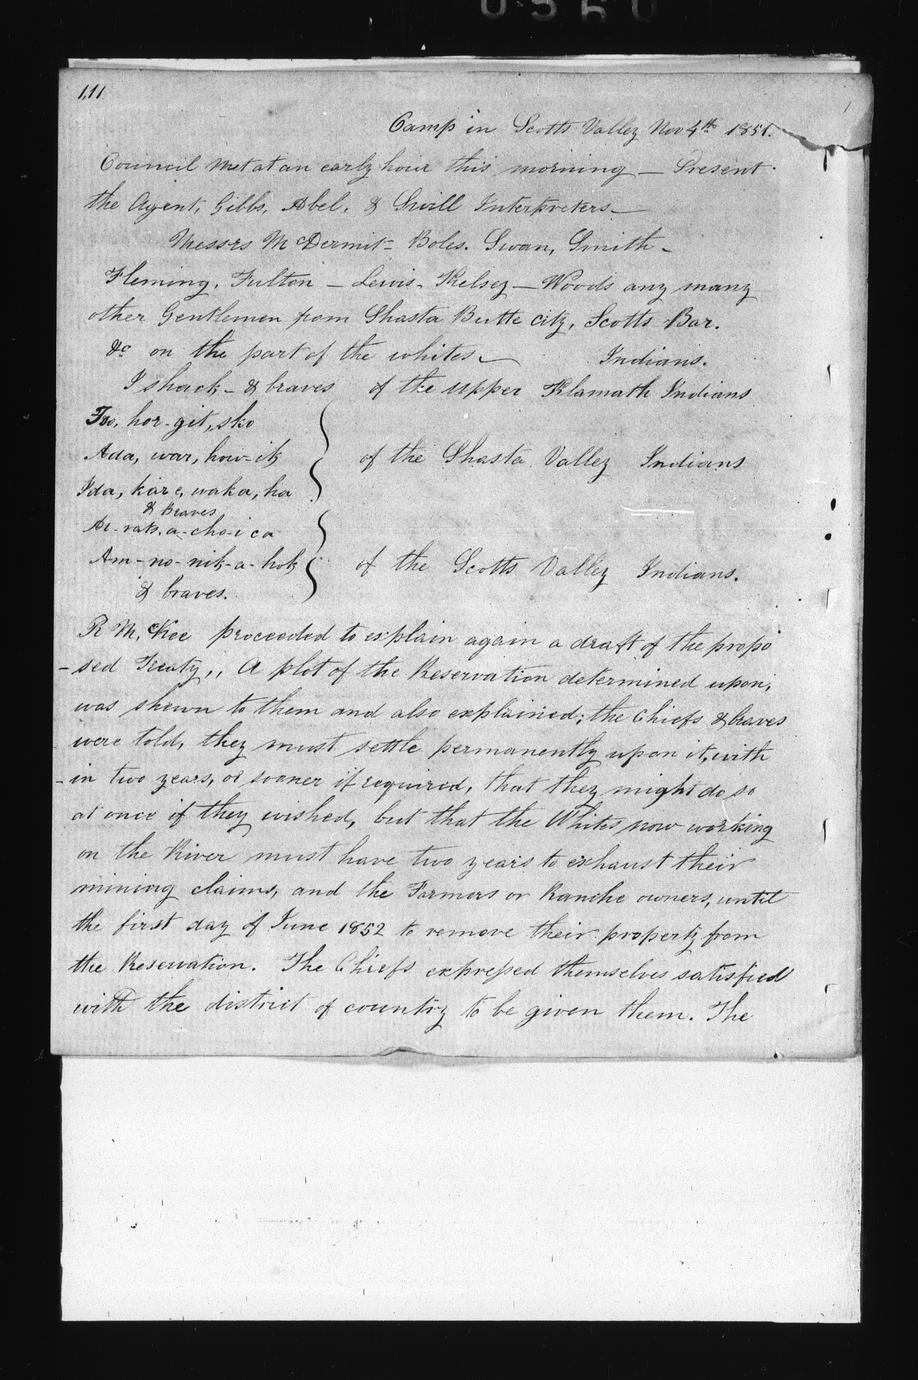 0560
111
Camp in Scotts Valley Nov 4th 1851.
Council met at an early hour this morning — Present
the Agent, Gibbs, Abel, & Swill Interpreters —
Messrs McDermit - Boles. Swan, Smith -
Fleming, Fulton - Lewis - Kelsey - Woods any many
other Gentlemen from Shasta Butte City, Scotts Bar.
&c on the part of the whites — Indians.
Ishack - & braves of the upper Klamath Indians
Too, hor-git, sko
Ada, war, how-ik of the Shasta Valley Indians
Ida, kare, waka, ha
& Braves
Ar-rats-a-cho-i ca
Am-no-nik-a-hok of the Scotts Valley Indians.
& braves.
R McKee proceeded to explain again a draft of the propo
-sed Treaty,, A plot of the Reservation determined upon,
was shewn to them and also explained; the Chiefs & braves
were told, they must settle permanently upon it, with
-in two years, or sooner if required, that they might do so
at once if they wished, but that the Whites now working
on the River must have two years to exhaust their
mining claims, and the Farmers or Ranche owners, until
the first day of June 1852 to remove their property from
the Reservation. The Chiefs expressed themselves satisfied
with the district of country to be given them. The